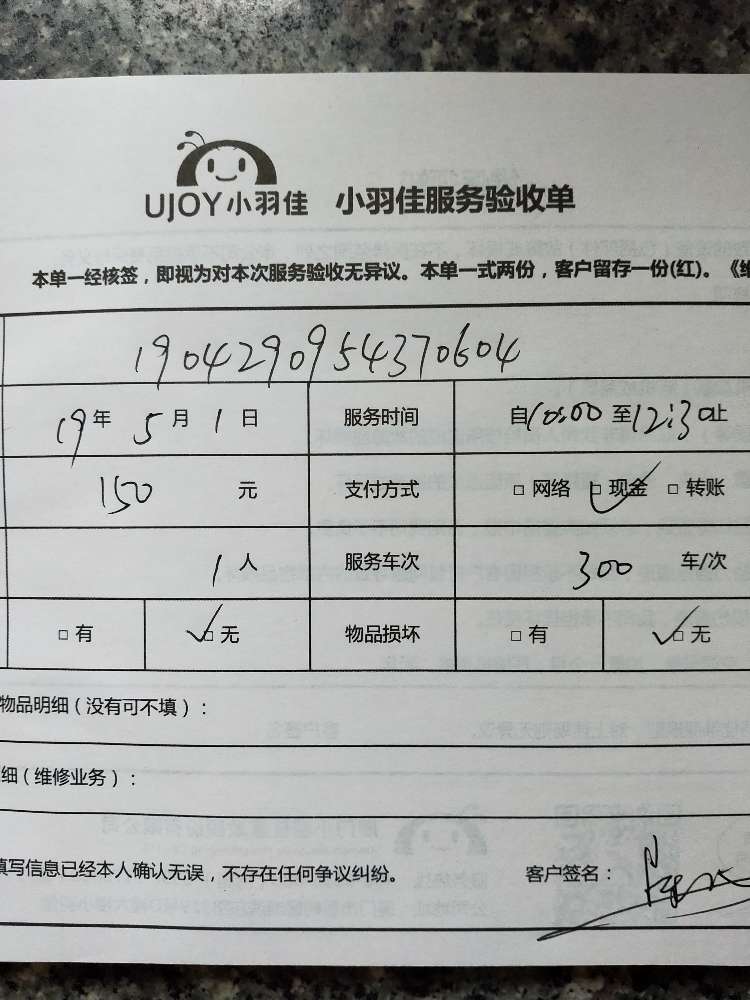 UJOY小羽佳 小羽佳服务验收单
本单一经核签，即视为对本次服务验收无异议。本单一式两份，客户留存一份(红)。《维
1904290954370604
19年 5月 1日 服务时间 自10:00至12:30止
150 元 支付方式 □ 网络 □ 现金 □ 转账
1人 服务车次 300 车/次
□ 有 □ 无 物品损坏 □ 有 □ 无
物品明细（没有可不填）：
细（维修业务）：
填写信息已经本人确认无误，不存在任何争议纠纷。 客户签名：